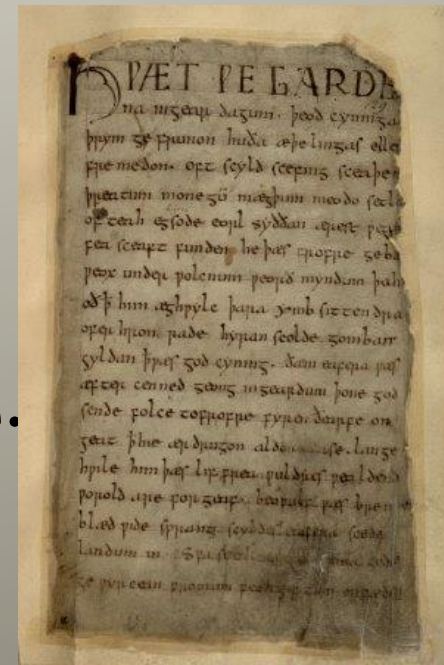 HǷÆT ǷE GARDE
na ingear dagum. þeod cyninga
þrym ge frunon huða æþelingas elle
fremedon. oft scyld scefing sceaþe
þreatum monegū mægþum meodo setla
of teah egsode eorl syððan ærest
fea sceaft funden he þæs frofre geba
ƿeox under ƿolcnum ƿeorð myndum þah
oð ꝥ him æghƿylc þara ymb sittendra
ofer hron rade hyran scolde gomban
gyldan ꝥ ƿæs god cyning. ðæm eafera ƿæs
æfter cenned geong ingeardum þone god
sende folce tofrofre fyren ðearfe on
geat ꝥ hie ær drugon lange
hƿile him þæs lif frea ƿuldres ƿealdend
ƿorold are for geaf. beoƿulf ƿæs breme
blæd ƿide sprang scyldes eafera scede
landum in. Sƿa guma gode
ge ƿyrcean fromum feohgiftum